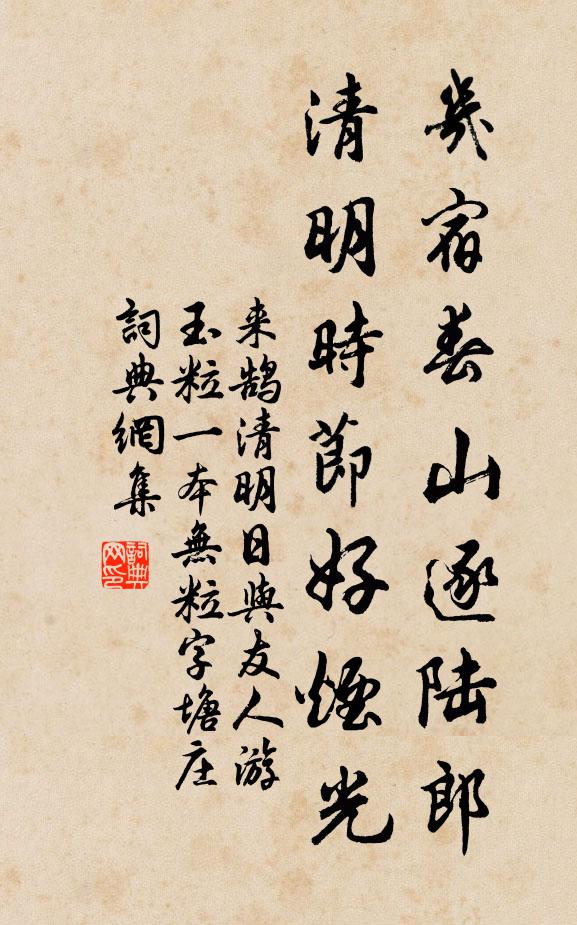 幾宿春山逐陆郎
清明時節好煙光
来鹄清明日與友人游
玉粒一本無粒字塘庄
詞典網集
詞典網印